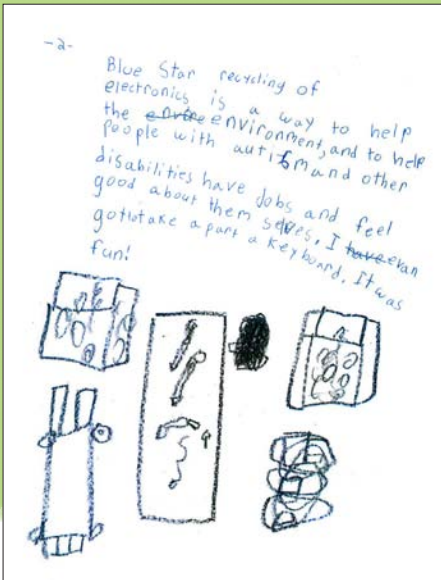 -2-
Blue Star recycling of
electronics is a way to help
the envire environment, and to help
people with autism and other
disabilities have Jobs and feel
good about them selves. I have evan
got to take a part a keyboard. It was
fun!